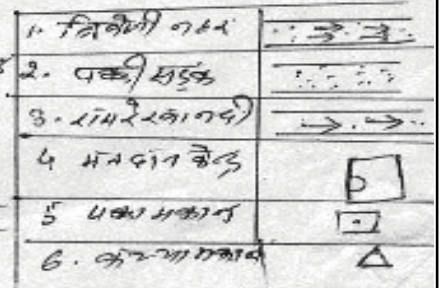 1. त्रिवेणी नहर
2. पक्की सड़क
3. रामरेखा नदी
4 मतदान केन्द्र
5 पक्का मकान
6. कच्चा मकान